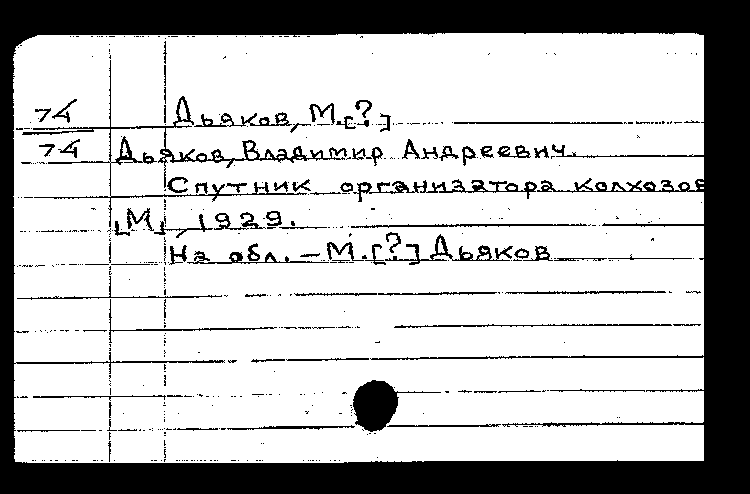 74 Дьяков, М.[?]
74 Дьяков, Владимир Андреевич.
Спутник организатора колхозов
[М], 1929.
На обл. — М.[?] Дьяков